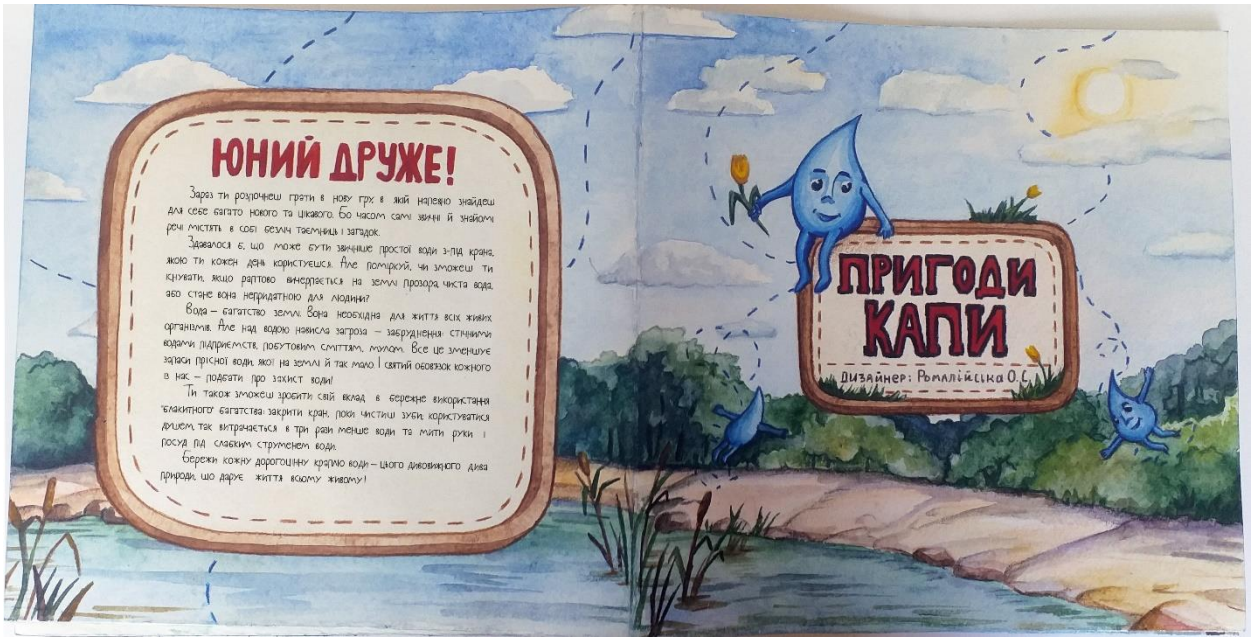 ЮНИЙ ДРУЖЕ!
Зараз ти розпочнеш грати в нову гру, в якій напевно знайдеш
для себе багато нового та цікавого. Бо часом самі звичні й знайомі
речі містять в собі безліч таємниць і загадок.
Здавалося б, що може бути звичніше простої води з-під крана,
якою ти кожен день користуєшся. Але поміркуй, чи зможеш ти
існувати, якщо раптово вичерпається на землі прозора, чиста вода,
або стане вона непридатною для людини?
Вода – багатство землі. Вона необхідна для життя всіх живих
організмів. Але над водою нависла загроза – забруднення: стічними
водами підприємств, побутовим сміттям, мулом. Все це зменшує
запаси прісної води, якої на землі й так мало. І святий обов'язок кожного
із нас – подбати про захист води!
Ти також зможеш зробити свій вклад в бережне використання
"блакитного" багатства: закрити кран, поки чистиш зуби; користуватися
душем, так витрачається в три рази менше води та мити руки і
посуд під слабким струменем води.
Бережи кожну дорогоцінну краплю води – цього дивовижного дива
природи, що дарує життя всьому живому!
ПРИГОДИ
КАПИ
Дизайнер: Ромалійська О.Є.